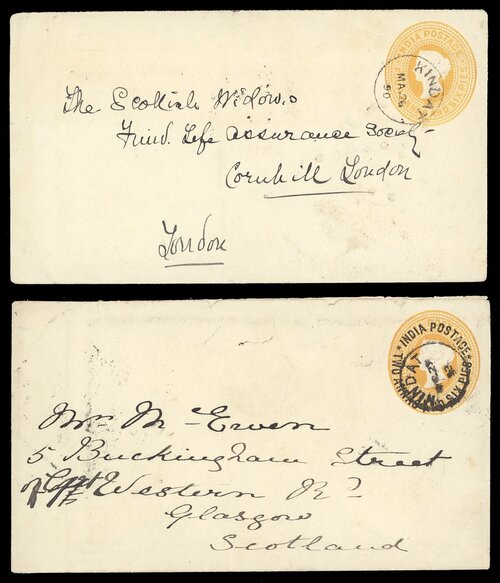 INDIA POSTAGE
TWO ANNAS SIX PIES
KINDAT
MA.26
90
The Scottish Widows
Fund. Life Assurance Society
Cornhill London
London
INDIA POSTAGE
TWO ANNAS AND SIX PIES
KINDAT
Mrs M. Ewen
5 Buckingham Street
Western Rd
Glasgow
Scotland